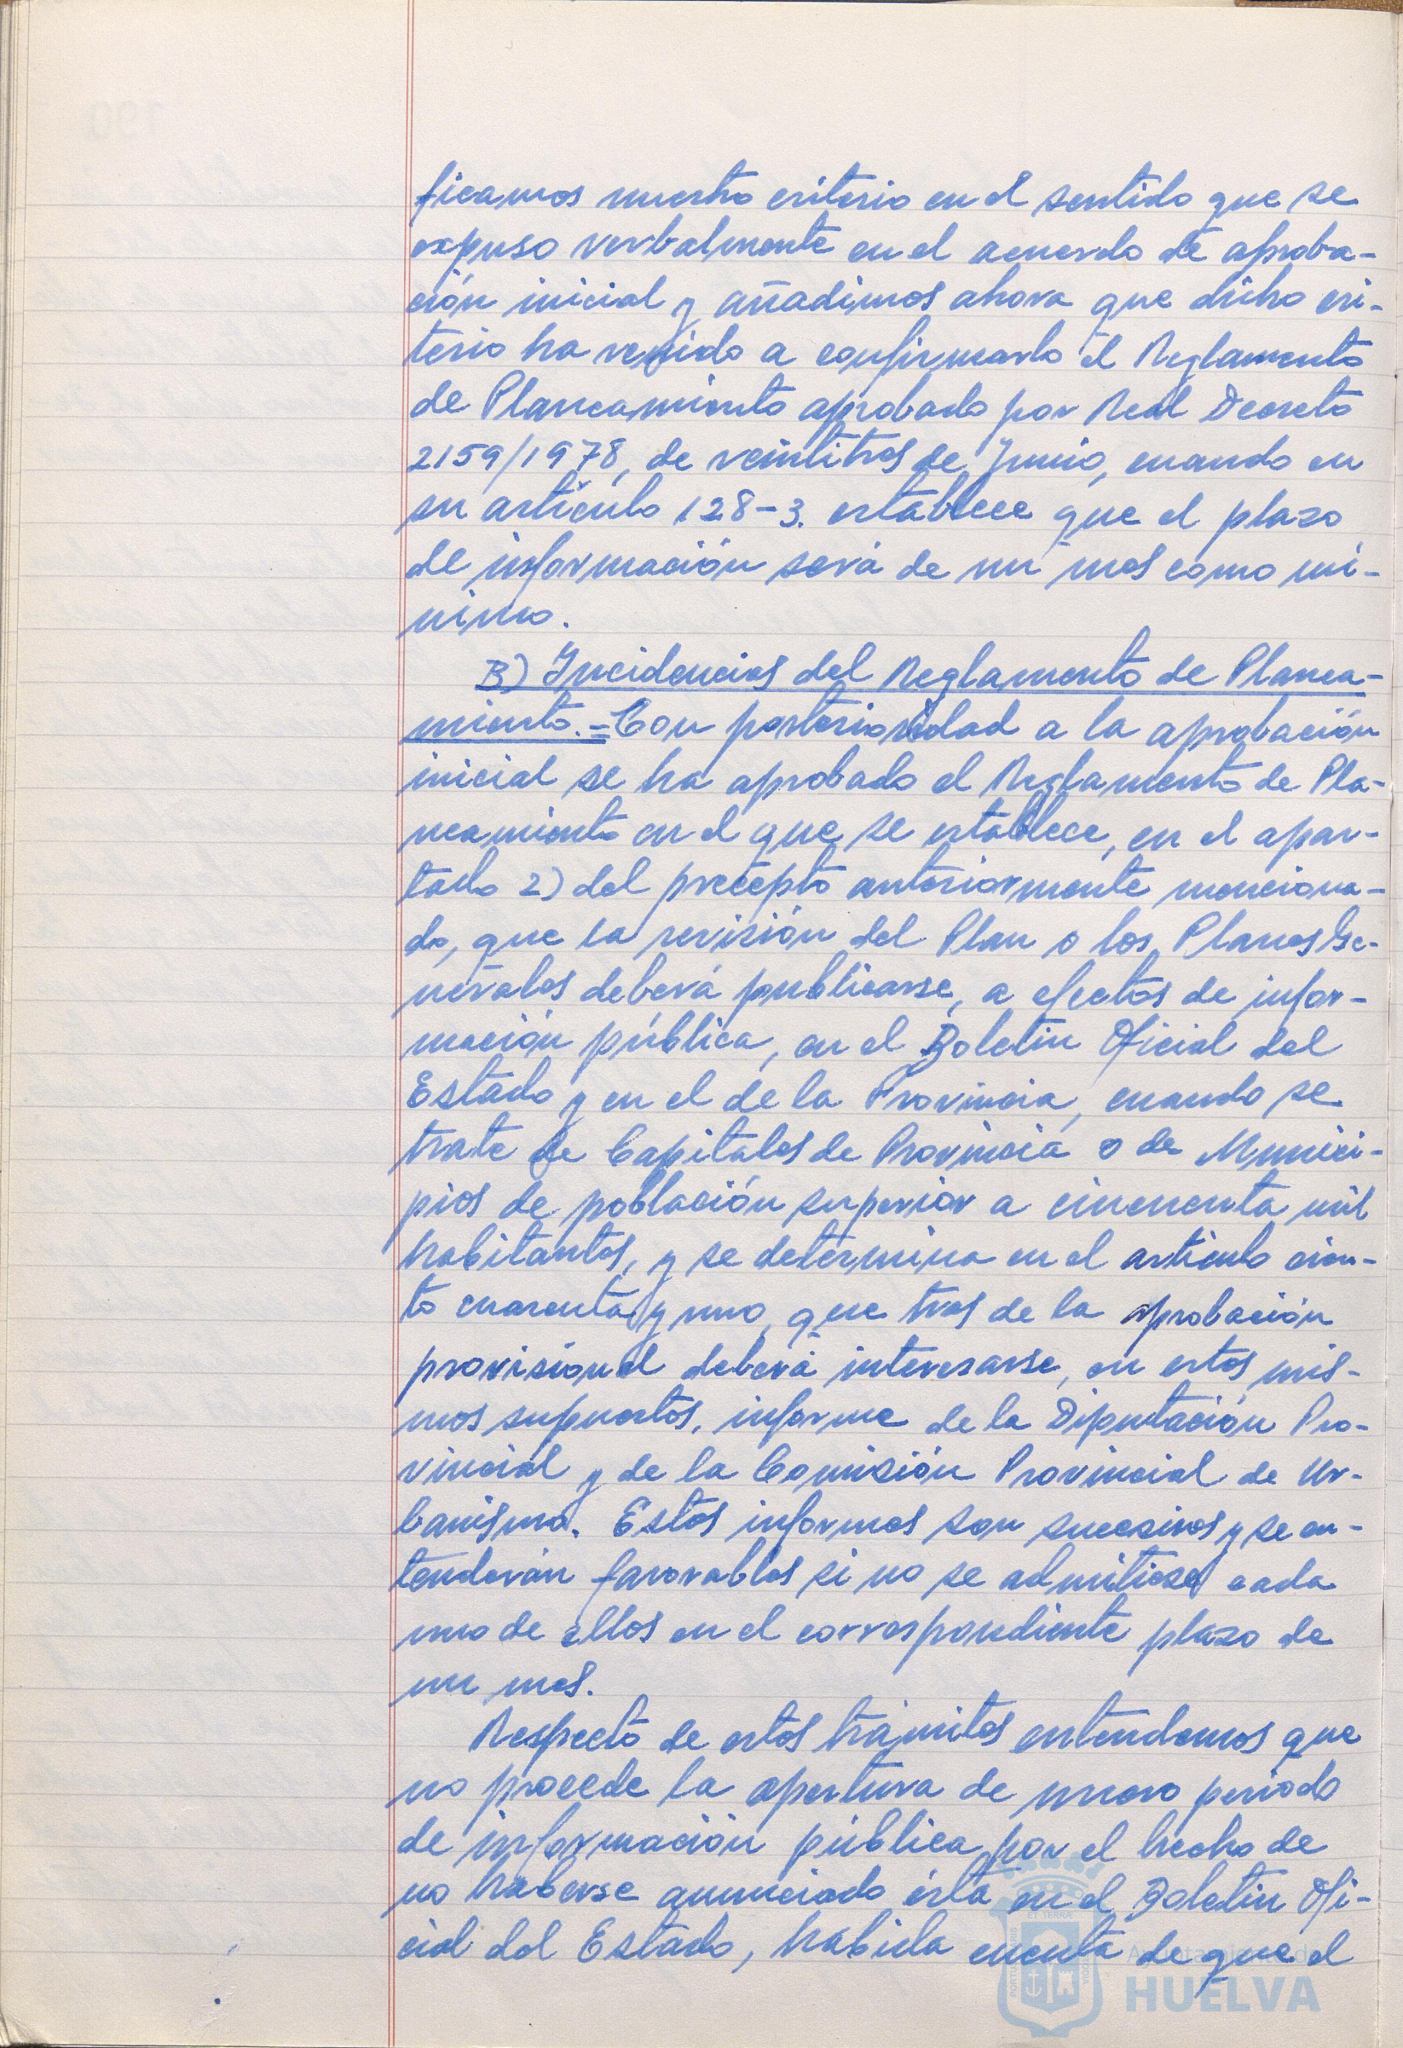 ficamos nuestro criterio en el sentido que se
expuso verbalmente en el acuerdo de aproba-
ción inicial y añadimos ahora que dicho cri-
terio ha venido a confirmarlo el Reglamento
de Planeamiento aprobado por Real Decreto
2159/1978, de veintitres de Junio, cuando en
su artículo 128-3. establece que el plazo
de información será de un mes como mí-
nimo.
B) Incidencias del Reglamento de Planea-
miento.= Con posterioridad a la aprobación
inicial se ha aprobado el Reglamento de Pla-
neamiento en el que se establece, en el apar-
tado 2) del precepto anteriormente menciona-
do, que la revisión del Plan o los Planes Ge-
nerales deberá publicarse, a efectos de infor-
mación pública, en el Boletín Oficial del
Estado y en el de la Provincia, cuando se
trate de Capitales de Provincia o de Munici-
pios de población superior a cincuenta mil
habitantes, y se determina en el artículo cien-
to cuarenta y uno, que tras de la aprobación
provisional deberá interesarse, en estos mis-
mos supuestos, informe de la Diputación Pro-
vincial y de la Comisión Provincial de Ur-
banismo. Estos informes son sucesivos y se en-
tenderán favorables si no se admitiese cada
uno de ellos en el correspondiente plazo de
un mes.
Respecto de estos trámites entendemos que
no procede la apertura de nuevo período
de información pública por el hecho de
no haberse anunciado ésta en el Boletín Ofi-
cial del Estado, habida cuenta de que el
Ayuntamiento de
HUELVA